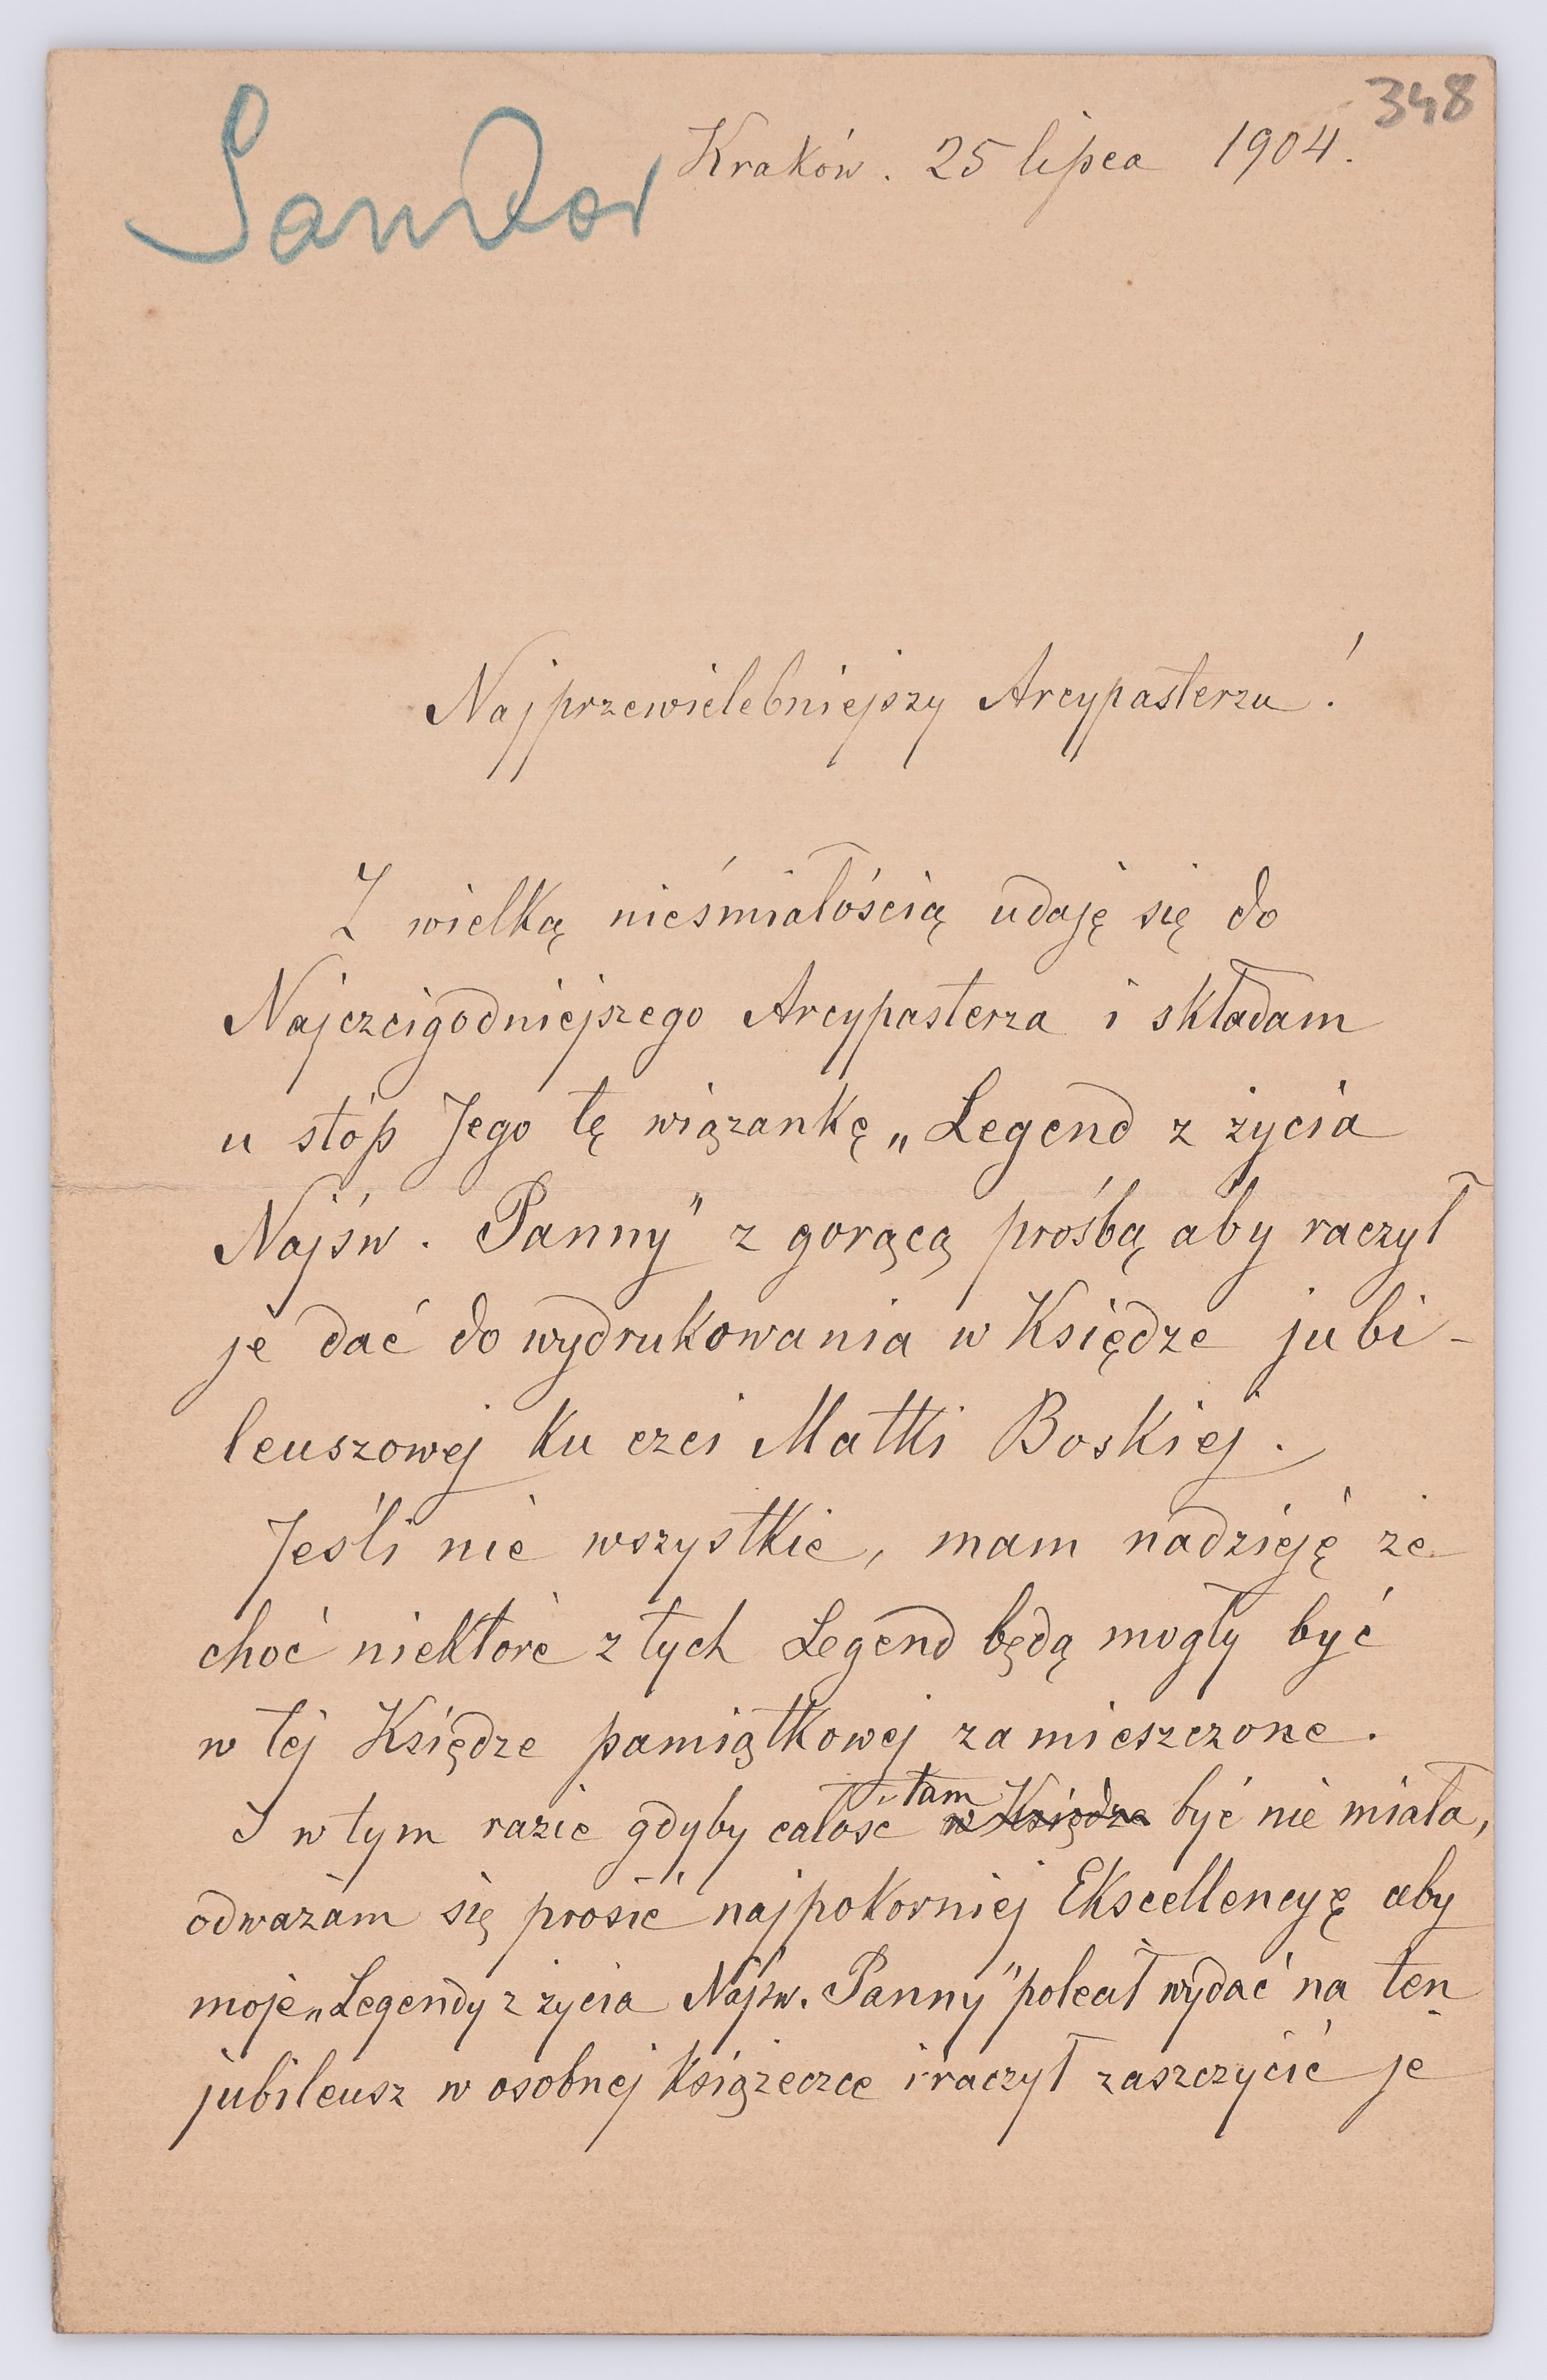 348
Sandoz
Kraków. 25 lipca 1904.
Najprzewielebniejszy Arcypasterzu!
Z wielką nieśmiałością udaję się do
Najczcigodniejszego Arcypasterza i składam
u stóp Jego tę wiązankę „Legend z życia
Najśw. Panny" z gorącą prośbą aby raczył
je dać do wydrukowania w Księdze jubi-
leuszowej ku czci Matki Boskiej.
Jeśli nie wszystkie, mam nadzieję że
choć niektóre z tych Legend będą mogły być
w tej Księdze pamiątkowej zamieszczone.
I w tym razie gdyby całość tam w Księdze być nie miała,
odważam się prosić najpokorniej Ekscellencyę aby
moje „Legendy z życia Najśw. Panny" polecił wydać na ten
jubileusz w osobnej książeczce i raczył zaszczycić je